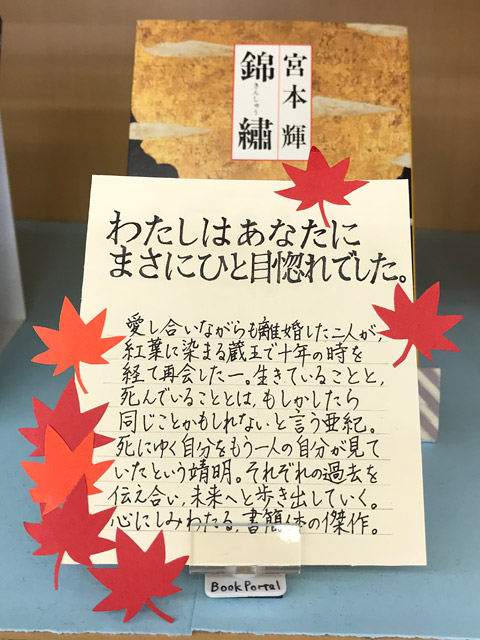 宮本輝
錦繍
きんしゅう
わたしはあなたに
まさにひと目惚れでした。
愛し合いながらも離婚した二人が、
紅葉に染まる蔵王で十年の時を
経て再会した―。生きていることと、
死んでいることとは、もしかしたら
同じことかもしれないと言う亜紀。
死にゆく自分をもう一人の自分が見て
いたという靖明。それぞれの過去を
伝え合い、未来へと歩き出していく。
心にしみわたる、書簡体の傑作。
Book Portal